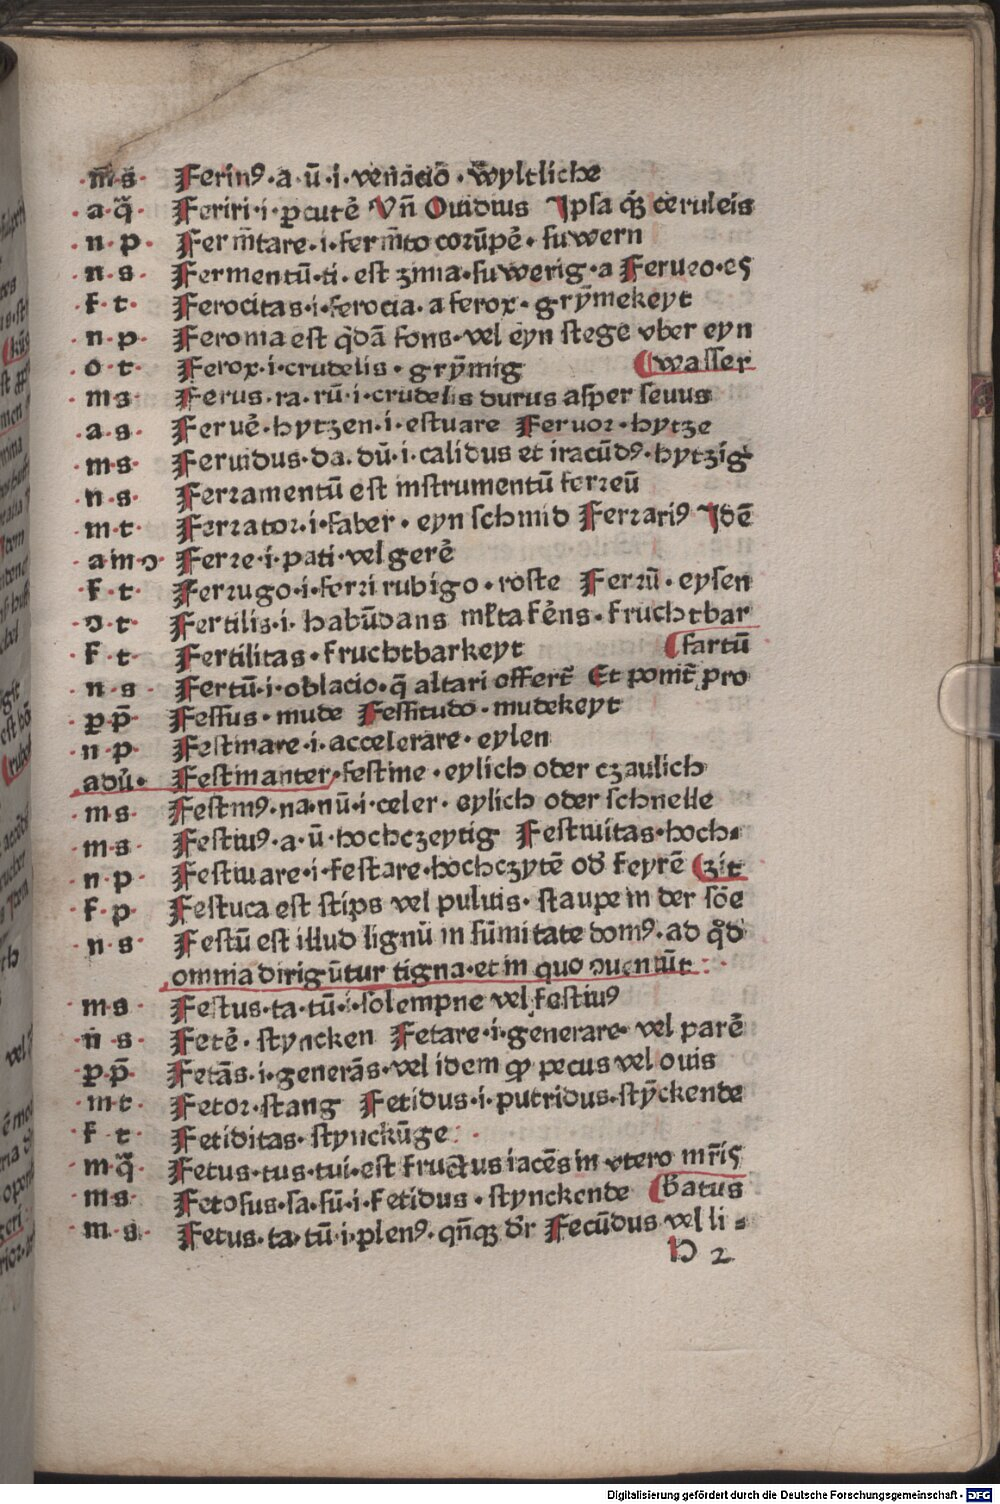 m̄ s̄ Ferinꝰ · a · ū · i · venacio · wyltliche
a · q̄ · Feriri · i · ꝑcutē Vn̄ Ouidius Ipsa qꝫ ceruleis
n · p · Ferm̄tare · i · ferm̄to corūpē · suwern
n · s · Fermentū · ti · est zima · suwerig · a Ferueo · es
f · t · Ferocitas · i · ferocia · a ferox · grȳmekeyt
n · p · Feronia est q̄dā fons · vel eyn stege vber eyn
o · t · Ferox · i · crudelis · grȳmig (wasser
m s · Ferus · ra · rū · i · crudelis durus asper seuus
a · s · Feruē · hytzen · i · estuare Feruor · hytze
m · s · Feruidus · da · dū · i · calidus et iracūdꝰ · hytzig
n · s · Ferramentū est instrumentū ferreū
m · t · Ferrator · i · faber · eyn schmid Ferrariꝰ Idē
a m ɔ Ferre · i · pati · vel gerē
f · t · Ferrugo · i · ferri rubigo · roste Ferrū · eysen
ɔ · t · Fertilis · i · habūdans ml̄ta fēns · fruchtbar
f · t · Fertilitas · fruchtbarkeyt (fartū
n · s · Fertū · i · oblacio · q̄ altari offert̄ Et ponit̄ pro
ꝑ p̄ · Fessus · mude Fessitudo · mudekeyt
n · p · Festinare · i · accelerare · eylen
adū · Festinanter · festine · eylich oder czaulich
m s · Festinꝰ · na · nū · i · celer · eylich oder schnelle
m s · Festiuꝰ · a · ū · hochczeytig Festiuitas · hoch⸗
n · p · Festiuare · i · festare · hochczytē od̄ feyrē (zit
f · p · Festuca est stips vel puluis · staupe in der sōe
n · s · Festū est illud lignū in sūmitate domꝰ · ad qd̄
omnia dirigūtur tigna · et in quo ɔueniūt :
m s · Festus · ta · tū · i · solempne vel festiuꝰ
n · s · Fetē · styncken Fetare · i · generare · vel parē
ꝑ p̄ · Fetās · i · generās · vel idem qꝫ pecus vel ouis
m t · Fetor · stang Fetidus · i · putridus · stȳckende
f t · Fetiditas · stynckūge
m · q̄ · Fetus · tus · tui · est fructus iacēs in vtero mr̄is
m s · Fetosus · sa · sū · i · fetidus · stynckende (batus
m · s · Fetus · ta · tū · i · plenꝰ · qn̄qꝫ dr̄ Fecūdus vel li⸗
h 2
Digitalisierung gefördert durch die Deutsche Forschungsgemeinschaft - DFG